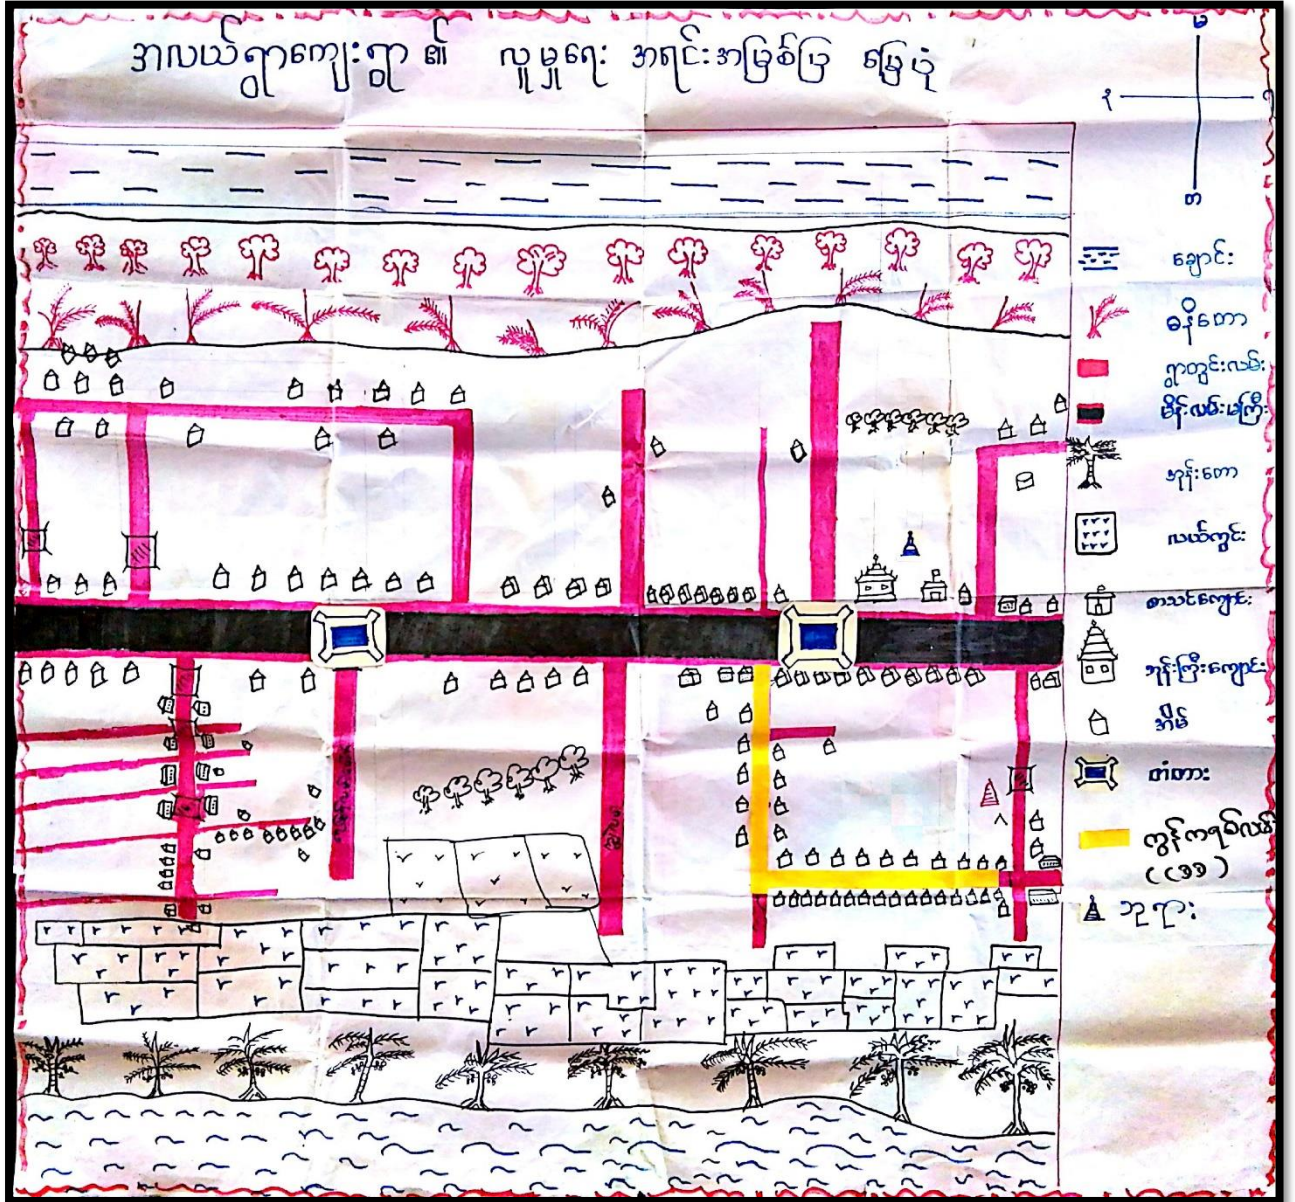 အလယ်ရွာကျေးရွာ ၏ လူမှုရေး အရင်းအမြစ်ပြ မြေပုံ
မ
တ
ချောင်း
ဓနိတော
ရွာတွင်းလမ်း
မိန်းလမ်းမကြီး
အုန်းတော
လယ်ကွင်း
စာသင်ကျောင်း
ဘုန်းကြီးကျောင်း
အိမ်
တံတား
ကွန်ကရစ်လမ်း
ဘုရား